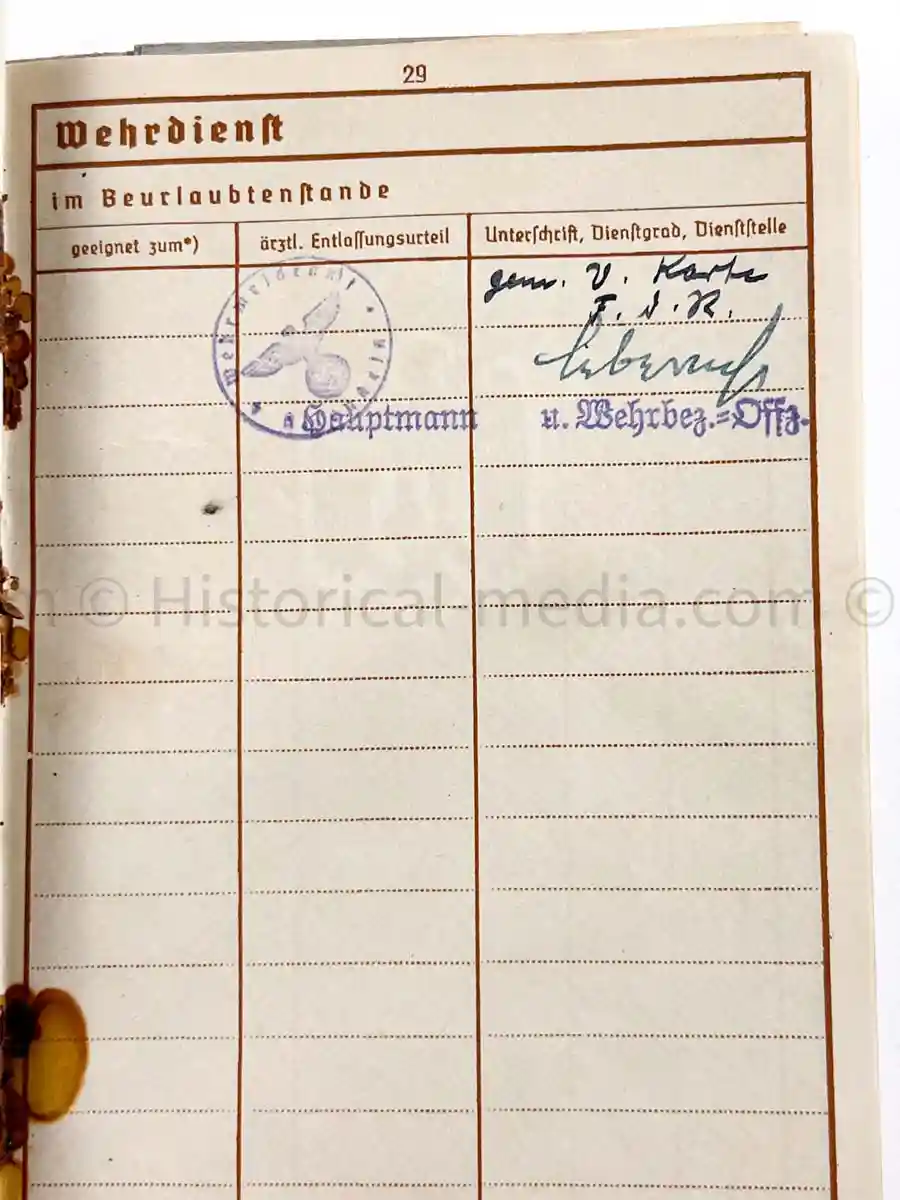 29
Wehrdienst
im Beurlaubtenstande
geeignet zum*)
ärztl. Entlassungsurteil
Unterschrift, Dienstgrad, Dienststelle
gem. V. Karte
F. d. R.
Wehrmeldeamt
Hauptmann u. Wehrbez.=Offz.
© Historical-media.com ©